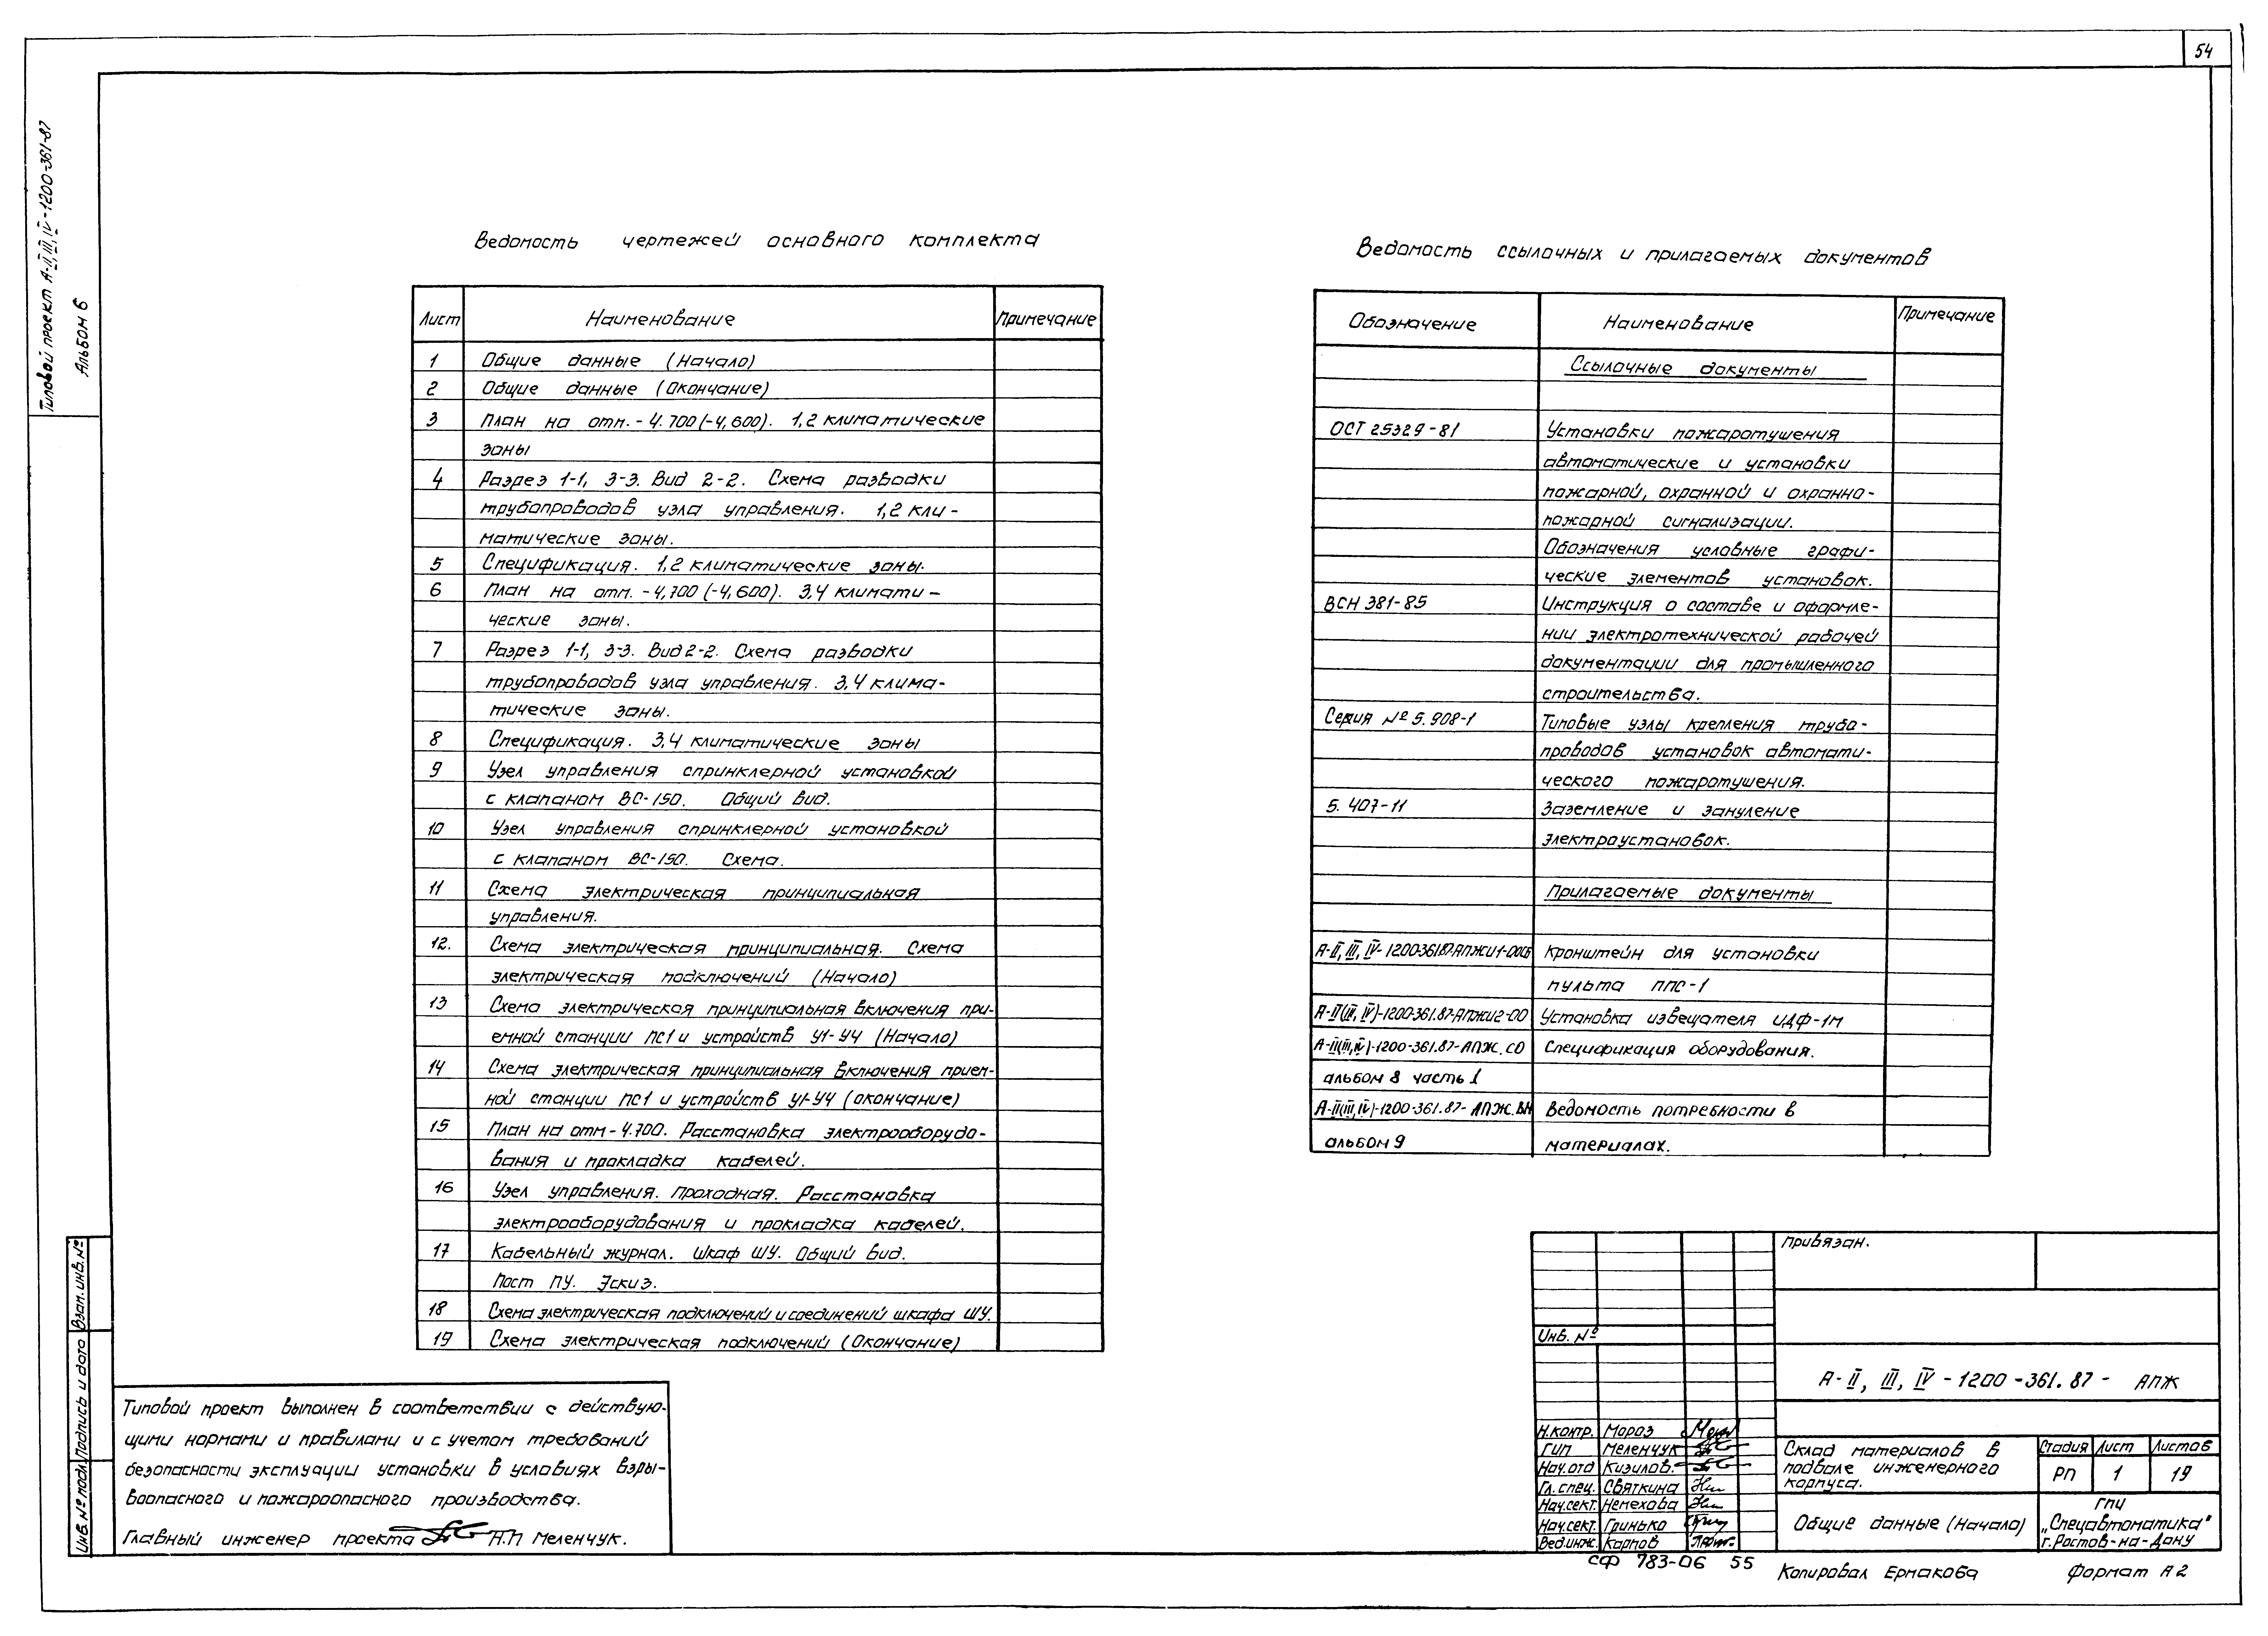 54
Типовой проект А-II, III, IV-1200-361-87
Альбом 6
Ведомость чертежей основного комплекта
Лист Наименование Примечание
1 Общие данные (Начало)
2 Общие данные (Окончание)
3 План на отм. -4.700 (-4,600). 1,2 климатические
зоны
4 Разрез 1-1, 3-3. Вид 2-2. Схема разводки
трубопроводов узла управления. 1,2 кли-
матические зоны.
5 Спецификация. 1,2 климатические зоны.
6 План на отм. -4,700 (-4,600). 3,4 климати-
ческие зоны.
7 Разрез 1-1, 3-3. Вид 2-2. Схема разводки
трубопроводов узла управления. 3,4 клима-
тические зоны.
8 Спецификация. 3,4 климатические зоны
9 Узел управления спринклерной установкой
с клапаном ВС-150. Общий вид.
10 Узел управления спринклерной установкой
с клапаном ВС-150. Схема.
11 Схема электрическая принципиальная
управления.
12. Схема электрическая принципиальная. Схема
электрическая подключений (Начало)
13 Схема электрическая принципиальная включения при-
емной станции ПС1 и устройств У1-У4 (Начало)
14 Схема электрическая принципиальная включения прием-
ной станции ПС1 и устройств У1-У4 (окончание)
15 План на отм -4.700. Расстановка электрооборудо-
вания и прокладка кабелей.
16 Узел управления. Проходная. Расстановка
электрооборудования и прокладка кабелей.
17 Кабельный журнал. Шкаф ШУ. Общий вид.
Пост ПУ. Эскиз.
18 Схема электрическая подключений и соединений шкафа ШУ.
19 Схема электрическая подключений (Окончание)
Ведомость ссылочных и прилагаемых документов
Обозначение Наименование Примечание
Ссылочные документы
ОСТ 25329-81 Установки пожаротушения
автоматические и установки
пожарной, охранной и охранно-
пожарной сигнализации.
Обозначения условные графи-
ческие элементов установок.
ВСН 381-85 Инструкция о составе и оформле-
нии электротехнической рабочей
документации для промышленного
строительства.
Серия № 5.908-1 Типовые узлы крепления трубо-
проводов установок автомати-
ческого пожаротушения.
5.407-11 Заземление и зануление
электроустановок.
Прилагаемые документы
А-II, III, IV-1200-361.87-АПЖИ1-00СБ Кронштейн для установки
пульта ППС-1
А-II(III, IV)-1200-361.87-АПЖИ2-00 Установка извещателя ИДФ-1М
А-II(III, IV)-1200-361.87-АПЖ.СО Спецификация оборудования.
альбом 8 часть 1
А-II(III, IV)-1200-361.87-АПЖ.ВМ Ведомость потребности в
альбом 9 материалах.
Типовой проект выполнен в соответствии с действую-
щими нормами и правилами и с учетом требований
безопасности эксплуации установки в условиях взры-
воопасного и пожароопасного производства.
Главный инженер проекта Н.П Меленчук.
Инв. № подл. Подпись и дата Взам. инв. №
Привязан.
Инв. №
А-II, III, IV-1200-361.87- АПЖ
Н.контр. Мороз
ГИП Меленчук
Нач.отд Кизилов.
Гл. спец. Святкина
Нач.сект. Немехова
Нач.сект. Гринько
Вед.инж. Карпов
Склад материалов в
подвале инженерного
корпуса.
Стадия Лист Листов
РП 1 19
Общие данные (Начало)
ГПИ
„Спецавтоматика"
г.Ростов-на-Дону
СФ 783-06 55
Копировал Ермакова Формат А2